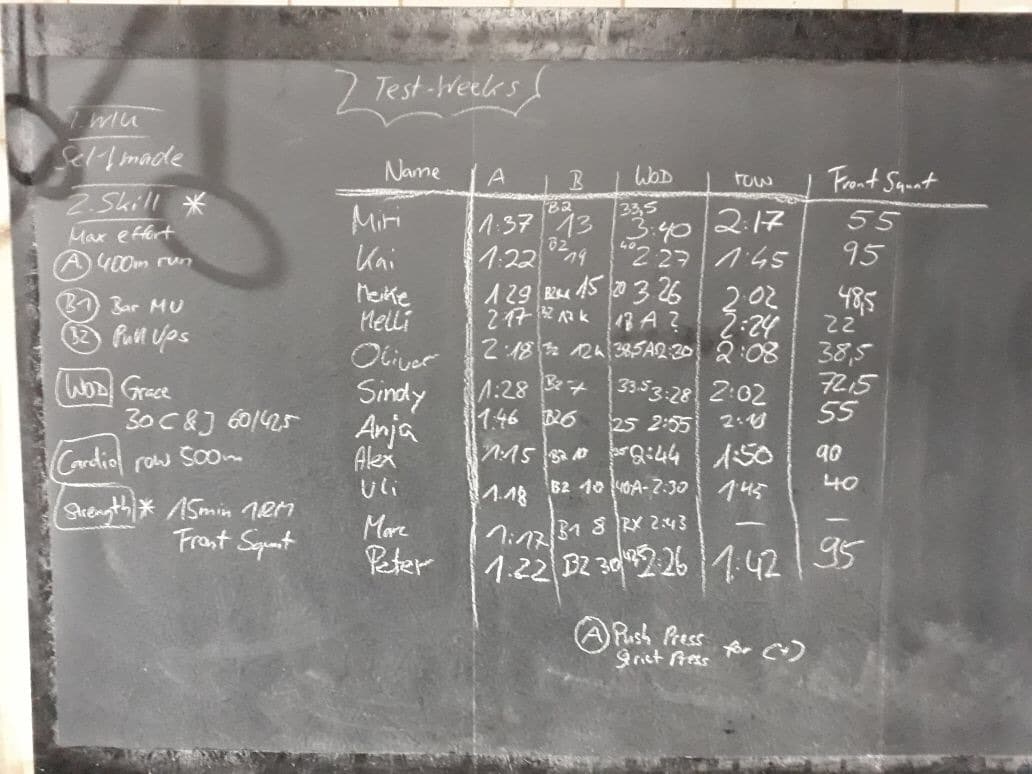 Test-Weeks
1. WU
Selfmade
2. Skill *
Max effort
A 400m run
B1 Bar MU
B2 Pull Ups
WOD Grace
30 C & J 60/42,5
Cardio row 500m
Strength * 15min 1RM
Front Squat
Name A B WOD row Front Squat
Miri 1:37 B2 13 33,5 3:40 2:17 55
Kai 1:22 B2 19 40 2:27 1:45 95
Meike 1 29 15 20 3 26 2:02 48,5
Melli 2 17 B2 12k A ? 2:24 22
Oliver 2:18 B2 12k 38,5 A 2:30 2:08 38,5
Sindy 1:28 B2 7 33,5 3:28 2:02 72,5
Anja 1:46 B2 6 25 2:55 55
Alex 1:15 B2 10 2:44 1:50 90
Uli 1:18 B2 10 40A-2:30 1:45 40
Marc 1:17 B1 8 RX 2:43 — —
Peter 1:22 B2 30 42,5 2:26 1:42 95
A Push Press
Strict Press for